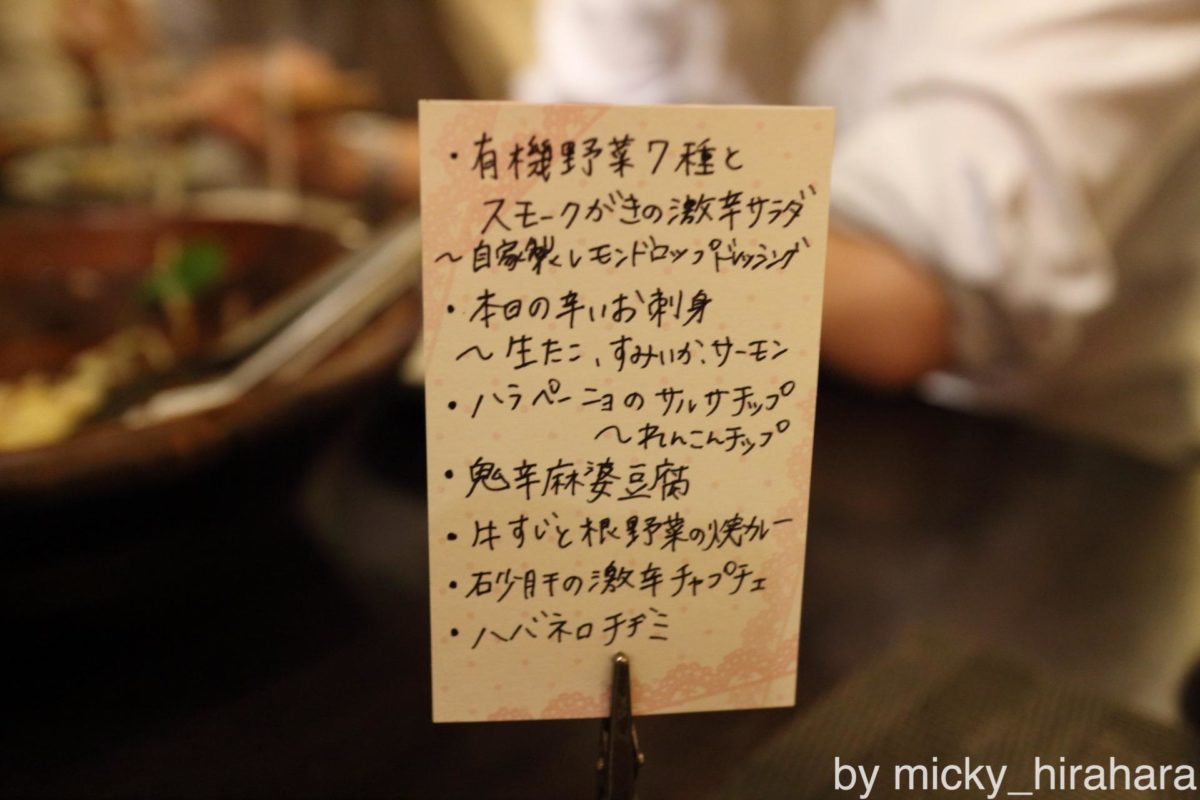 ・有機野菜7種と
スモークがきの激辛サラダ
〜自家製レモンドロップドレッシング
・本日の辛いお刺身
〜生たこ、すみいか、サーモン
・ハラペーニョのサルサチップ
〜れんこんチップ
・鬼辛麻婆豆腐
・牛すじと根野菜の焼カレー
・砂肝の激辛チャプチェ
・ハバネロチヂミ
by micky_hirahara